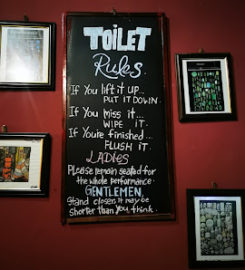 TOILET
Rules.
If You lift it up...
PUT IT DOWN.
If You miss it...
WIPE IT.
If You're finished...
FLUSH IT.
LADIES
Please remain seated for
the whole performance.
GENTLEMEN,
Stand closer, it may be
shorter than You think.